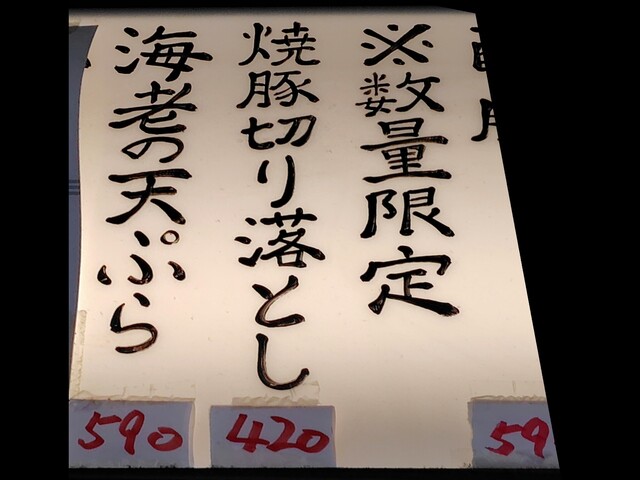 ※数量限定
焼豚切り落とし
420
海老の天ぷら
590
59